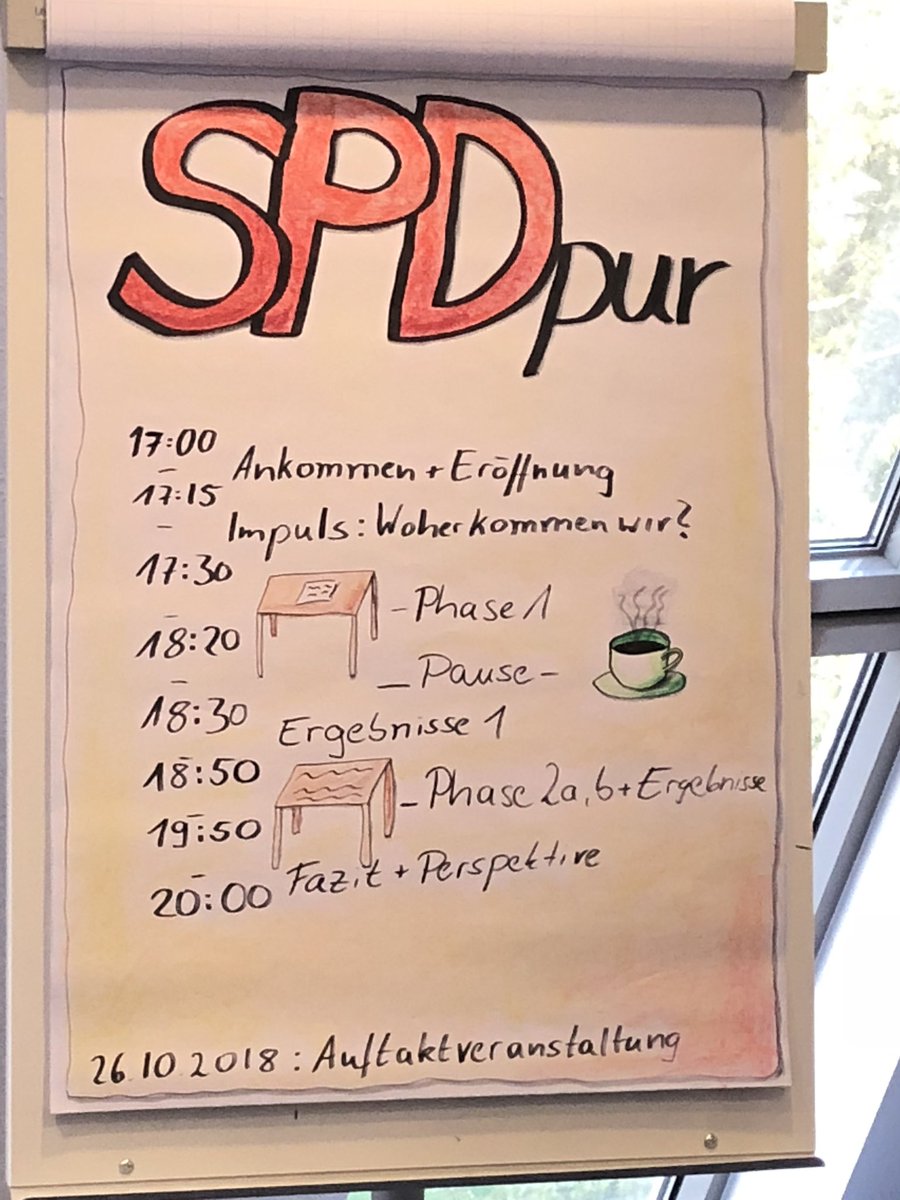 SPD pur
17:00
– Ankommen + Eröffnung
17:15
– Impuls: Woher kommen wir?
17:30
– Phase 1
18:20
– Pause –
18:30
Ergebnisse 1
18:50
– Phase 2a, b + Ergebnisse
19:50
– Fazit + Perspektive
20:00
26.10.2018: Auftaktveranstaltung